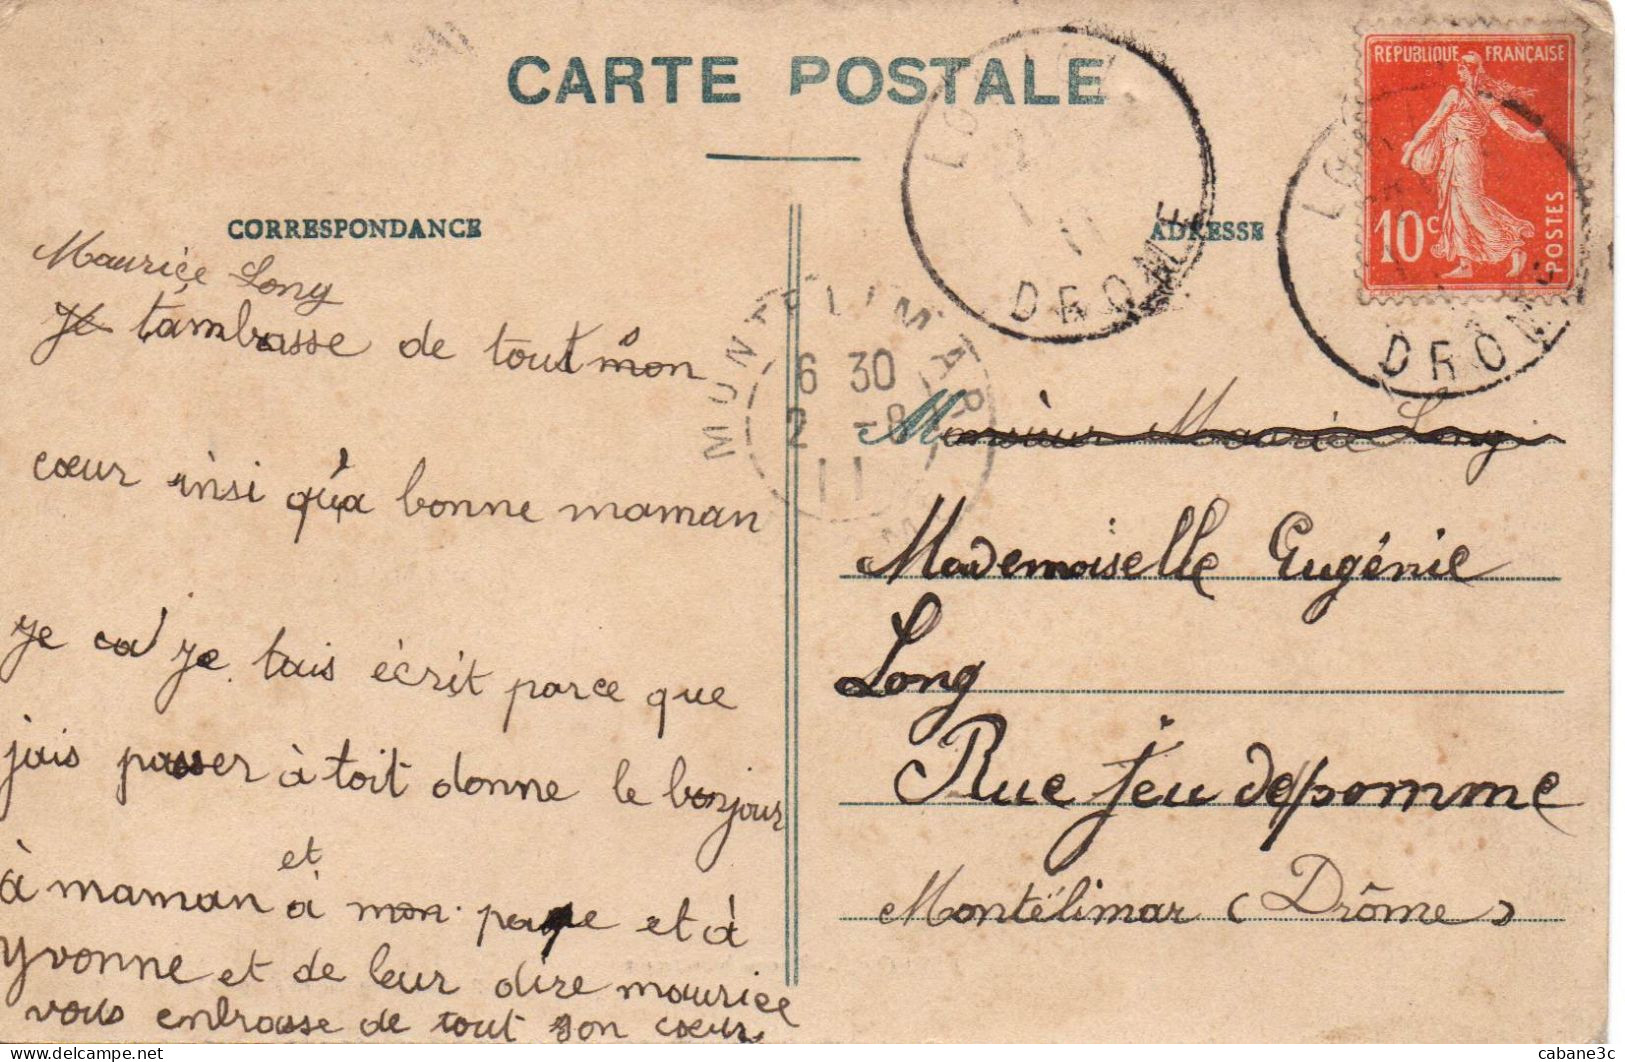 CARTE POSTALE
REPUBLIQUE FRANÇAISE
10c
POSTES
DROME
DROME
CORRESPONDANCE
ADRESSE
MONTELIMAR
6 30
2 -8
11
Maurice Long
Je tambrasse de tout mon
cœur insi qu'a bonne maman
Je ca' Je tais écrit parce que
jais passer à toit donne le bonjour
à maman et à mon pape et à
Yvonne et de leur dire maurice
vous enbrasse de tout son cœur
Monsieur Maurice Long
Mademoiselle Eugénie
Long
Rue Jeu de pomme
Montélimar (Drôme)
cabane3c